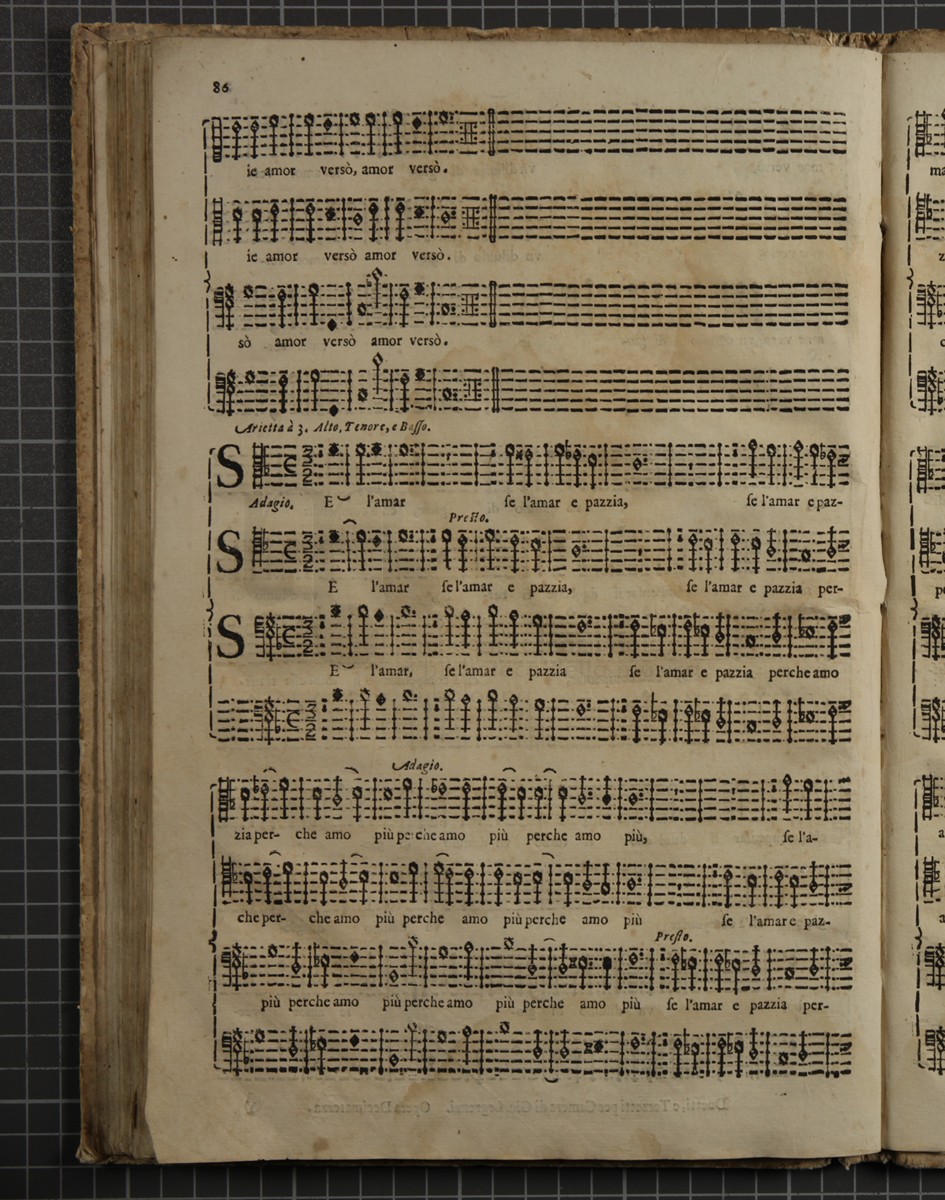 86
ie amor versò, amor versò.
ie amor versò amor versò.
sò amor versò amor versò.
Arietta à 3. Alto, Tenore, e Basso.
S
Adagio. E l'amar se l'amar e pazzia, se l'amar e paz-
Presto.
S
E l'amar se l'amar e pazzia, se l'amar e pazzia per-
S
E l'amar, se l'amar e pazzia se l'amar e pazzia perche amo
Adagio.
zia per- che amo più perche amo più perche amo più, se l'a-
che per- che amo più perche amo più perche amo più se l'amar e paz-
Presto.
più perche amo più perche amo più perche amo più se l'amar e pazzia per-